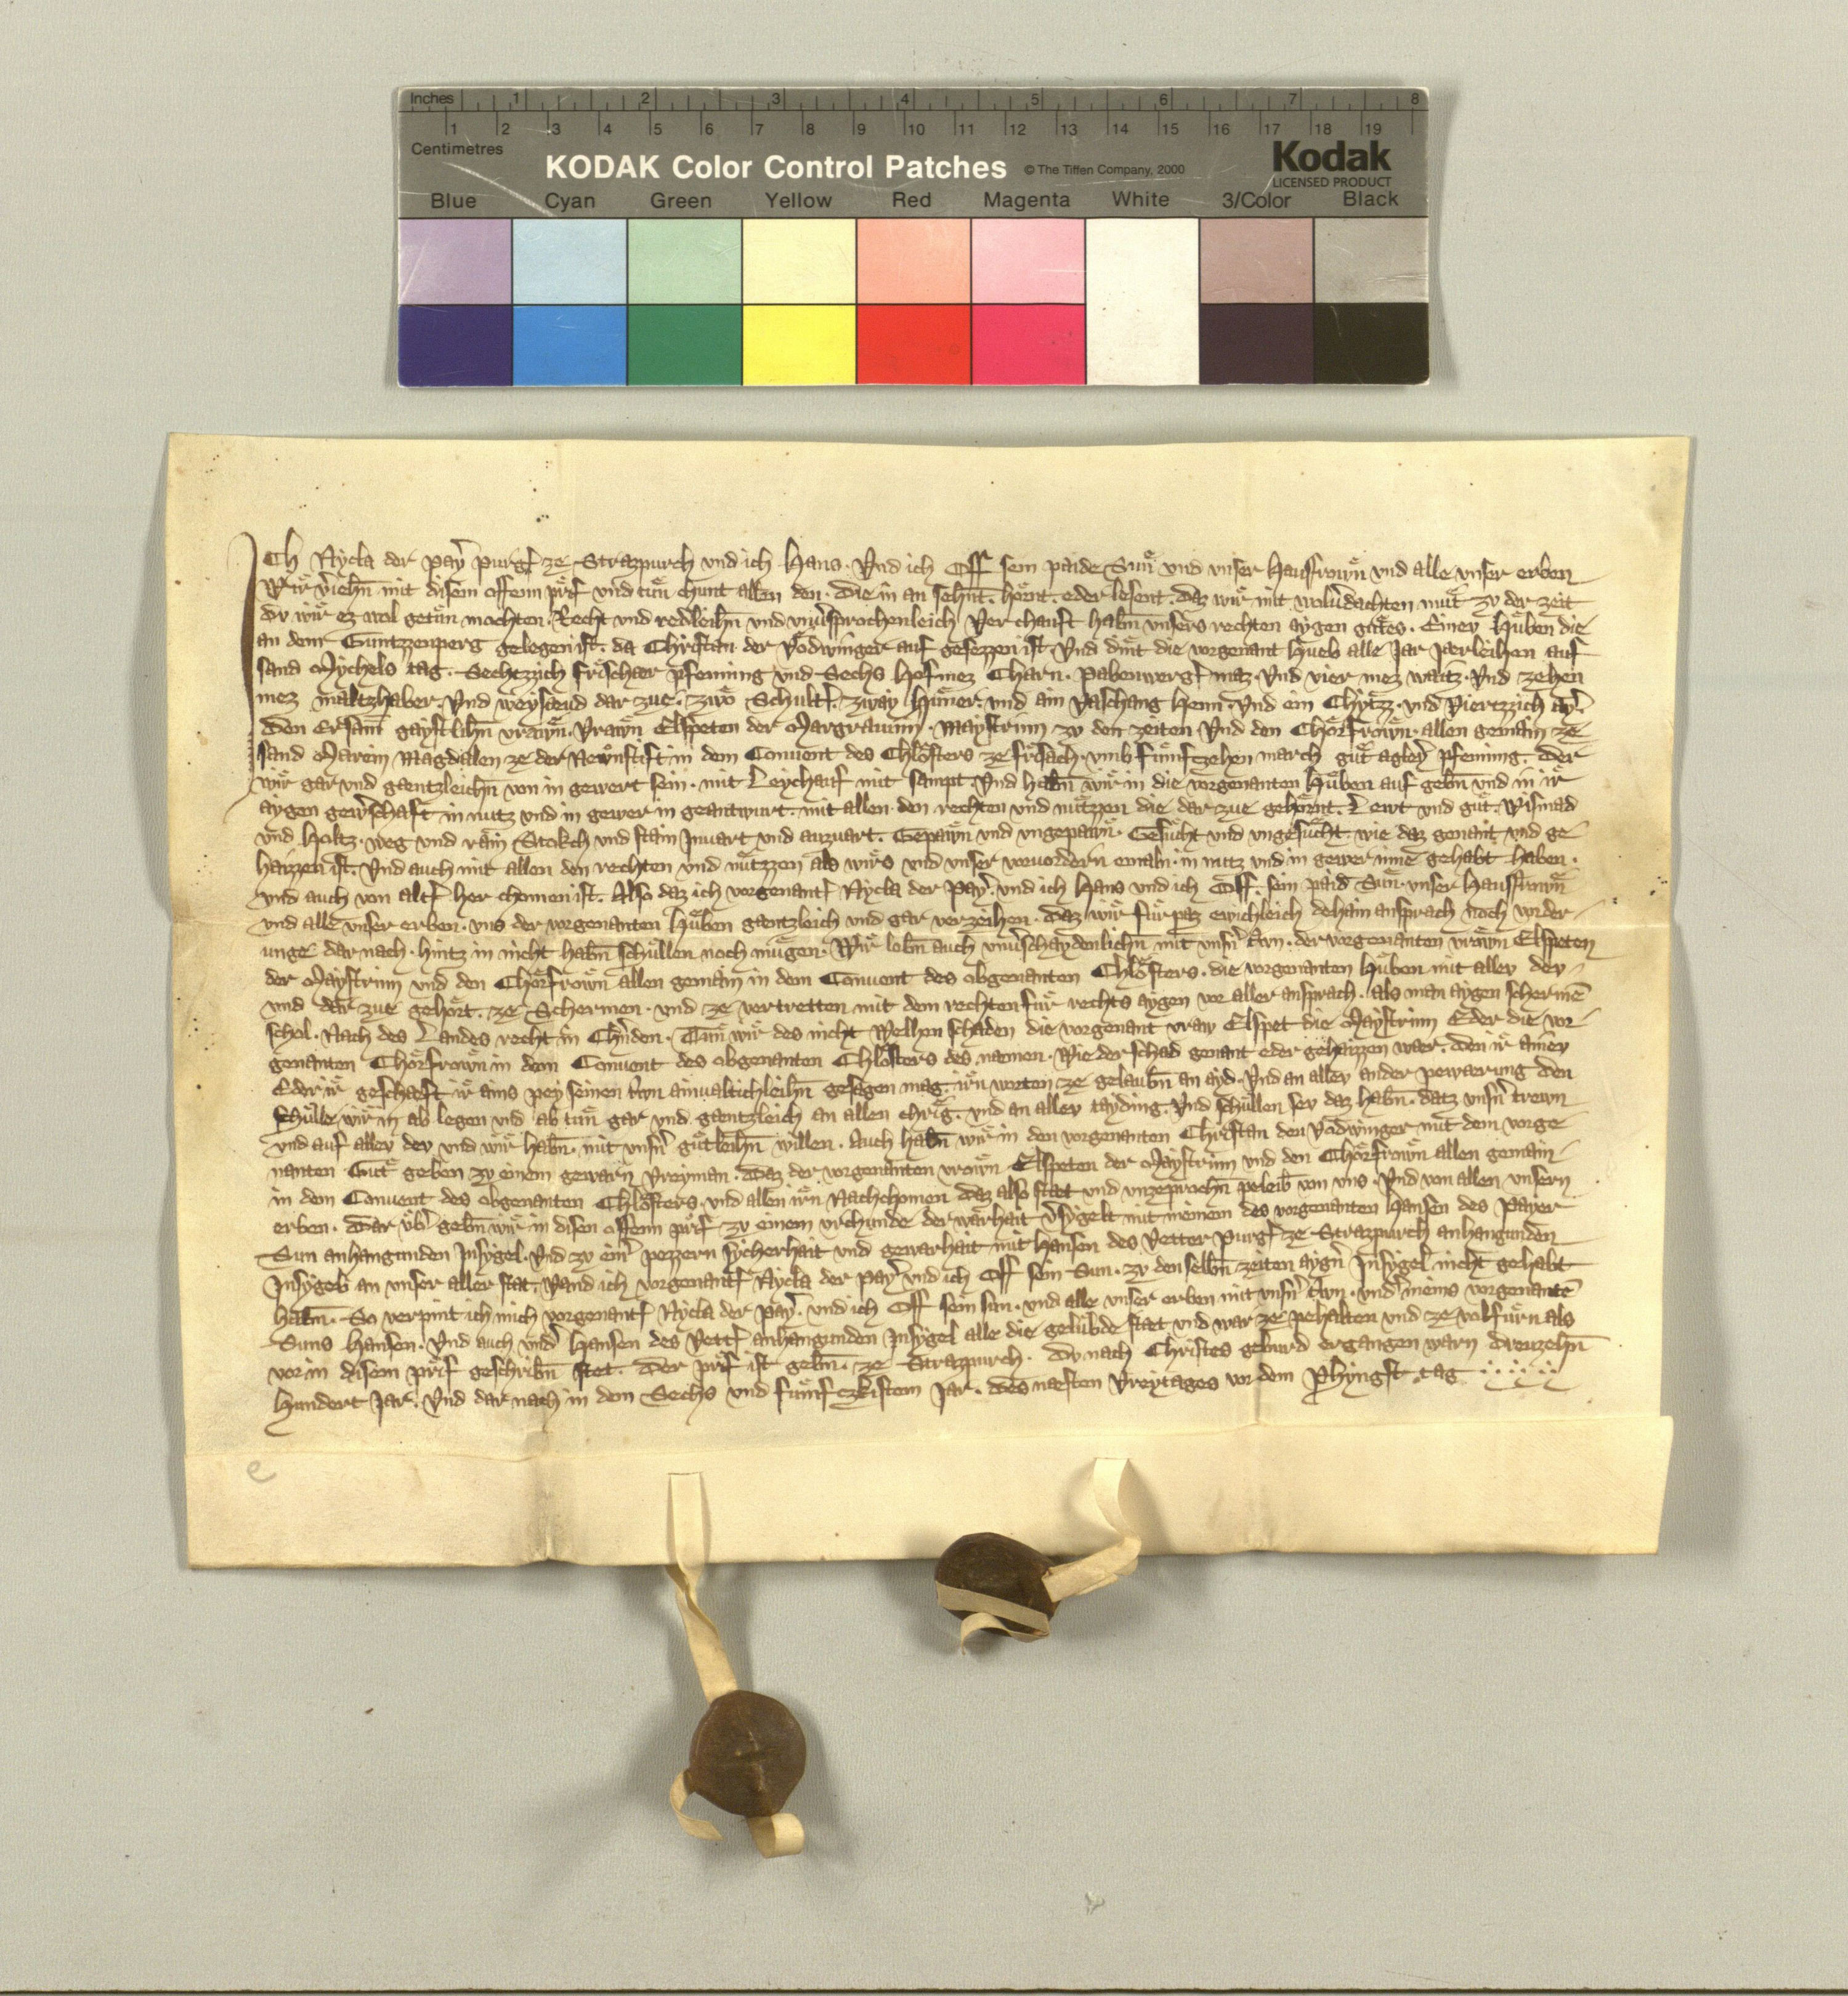 Inches 1 2 3 4 5 6 7 8
1 2 3 4 5 6 7 8 9 10 11 12 13 14 15 16 17 18 19
Centimetres
KODAK Color Control Patches © The Tiffen Company, 2000 Kodak
LICENSED PRODUCT
Blue Cyan Green Yellow Red Magenta White 3/Color Black
ICh Nycla der Pay̓ purgꝭ ze Strazpurch vnd ich Hans. Vnd ich Off sein paide Suͤn vnd vnser Hausfrowͤn vnd alle vnser erben
Wir v̓iehn̄ mit disem offenn prif vnd tuͤn chunt allen den. die in an sehnt. hoͤrnt. eder lesent. daz wir mit wolv̓dachten muͤt zv der zeit
dv wir ez wol getuͤn mochten. Recht vnd redleihn̄ vnd vnv̓sprochenleich Ver chauft habn̄ vnsers rechten aygen guͤtes. Einev Huͤben die
an dem Guntzzenperg gelegen ist. da Christan der Voͤdwinger auf gesezzen ist. Vnd dint die vorgenant Hueb alle Jar Jaerleihen auf
sand Mychels tag. Sechtzzich frischaer pfenning vnd Sechs Hofmez Charn. Pabenwergꝭ maz. Vnd vier mez waitz. Vnd zehen
mez maltzhaber. Vnd weysoeud dar zue. zwo Schultꝭ. zway Huͤner. vnd ain Vaschang henn. Vnd ein Chytzz. vnd Viertzzich ay̓
den Ersam̄ gaystlihn̄ vrawn. Vrawn Elspeten der Margrauinn. Maystrinn zv den zeiten Vnd den Chorfrowͤn. allen gemain ze
sand Marein Magdalen ze der Newnstift in dem Conuent des Chlosters ze frisach. vmb fuͤnfczehen march guͤt agley̓ pfenning. der
wir gar vnd gaentzleichn̄ von in gewert sein. mit Leychauf mit sampt. Vnd habn̄ wir in die vorgenanten Huͤben auf gebn̄ vnd in ir
aygen gew̓schaft in nutz vnd in gewer in geantwurt. mit allen den rechten vnd nuͤtzzen die dar zue gehoͤrnt. Lewt vnd guͤt. Wismad
vnd Holtz. weg vnd rain Stokch vnd stain Invart vnd auzvart. Gepawn vnd vngepawn. Gesuͤcht vnd vngesuͤcht wie daz genant vnd ge
haizzen ist. Vnd auch mit allen den rechten vnd nuͤtzzen als wirs vnd vnser vorvordern emaln. in nutz vnd in gewer inne gehabt haben.
vnd auch von altꝭ her chomen ist. Also daz ich vorgenantꝭ Nycla der Pay̓. vnd ich Hans vnd ich Off. sein paid Suͤn. vnser Hausfrowͤn
vnd alle vnser erben. vns der vorgenanten Huͤben gentzleich vnd gar verzeihen. daz wir fuͤr paz ewichleich dehain ansprach noch vorder
unge dar nach. hintz in nicht habn̄ schuͤllen noch muͤgen. Wir lobn̄ auch vnuschaydenlichn̄ mit vnsn̓ trewn. der vorgenanten vrawn Elspeten
der Maystrinn vnd den Chorfrowͤn allen gemain in dem Conuent des obgenanten Chlosters. die vorgenanten Huͤben mit allev dev
vnd dar zue gehoͤrt. ze Schermen. vnd ze vertretten mit dem rechten fuͤr rechts aygen vor aller ansprach. als man aygen schermē
schol. Nach des Landes recht in Chn̓den. Tuͤn wir des nicht Welhen schaden die vorgenant vraw Elspet die Maystrinn Eder die vor
genanten Chorfrowͤn in dem Conuent des obgenanten Chlosters des naemen. Wie der schad genant eder gehaizzen waer. den ir ainev
Eder ir geschaeft ir ains pey seinen trwn ainualtichleihn̄ gesagen mag. irn worten ze gelaubn̄ an ayd. Vnd an allev ander pewaerung den
Schuͤlle wir in ab legen vnd ab tuͤn gar vnd gaentzleich an allen chrig. vnd an allev tayding. Vnd schuͤllen sev daz habn̄. datz vnsn̓ trewn
vnd auf allev dev vnd wir habn̄. mit vnsn̓ guͤtleihn̄ willen. Auch habn̄ wir in den vorgenanten Christan den Voͤdwinger mit dem vorge
nanten Guͤt geben zv einem gewarn Vreyman. Daz der vorgenanten vrowͤn Elspeten der Maystrinn vnd den Chorfrowͤn allen gemain
in dem Conuent des obgenanten Chlosters. vnd allen irn Nachchomen daz also staet vnd vnzeprochn̄ peleib von vns. Vnd von allen vnsern
erben. Dar vb̓ gebn̄ wir in disen offenn prif zv einem vrchunde der warhait v̓sygelt mit meinem des vorgenanten Hansen des Payer
Sun anhangunden Insygel. Vnd zv einr̓ pezzern sycherhait vnd gewarhait mit Hansen des Vetter Purgꝭ ze Strazpurch anhangunden
Insygeb an vnser aller stat. Vand ich vorgenantꝭ Nycla der Pay̓ vnd ich Off sein Sun. zv den selbn̄ zeiten aygn̓ Insygel nicht gehabt
habn̄. So verpint ich mich vorgenantꝭ Nycla der Pay̓. vnd ich Off sein sun. vnd alle vnser erben mit vnsn̓ trwn. vnd̓ meins vorgenantē
Suns Hansen. Vnd auch vnd̓ Hansen des Vettꝭ anhangunden Insygel alle die geluͤbde staet vnd war ze pehalten vnd ze volfuͤrn als
vor in disem prif geschribn̄ stet. Der prif ist gebn̄. ze Strazpurch. Dv nach Christes geburd ergangen warn Dreuzehn̄
Hundert Jar. Vnd dar nach in dem Sechs vnd fuͤnfczkistem Jar. des naesten Vreytages vor dem Phyngst tag
e